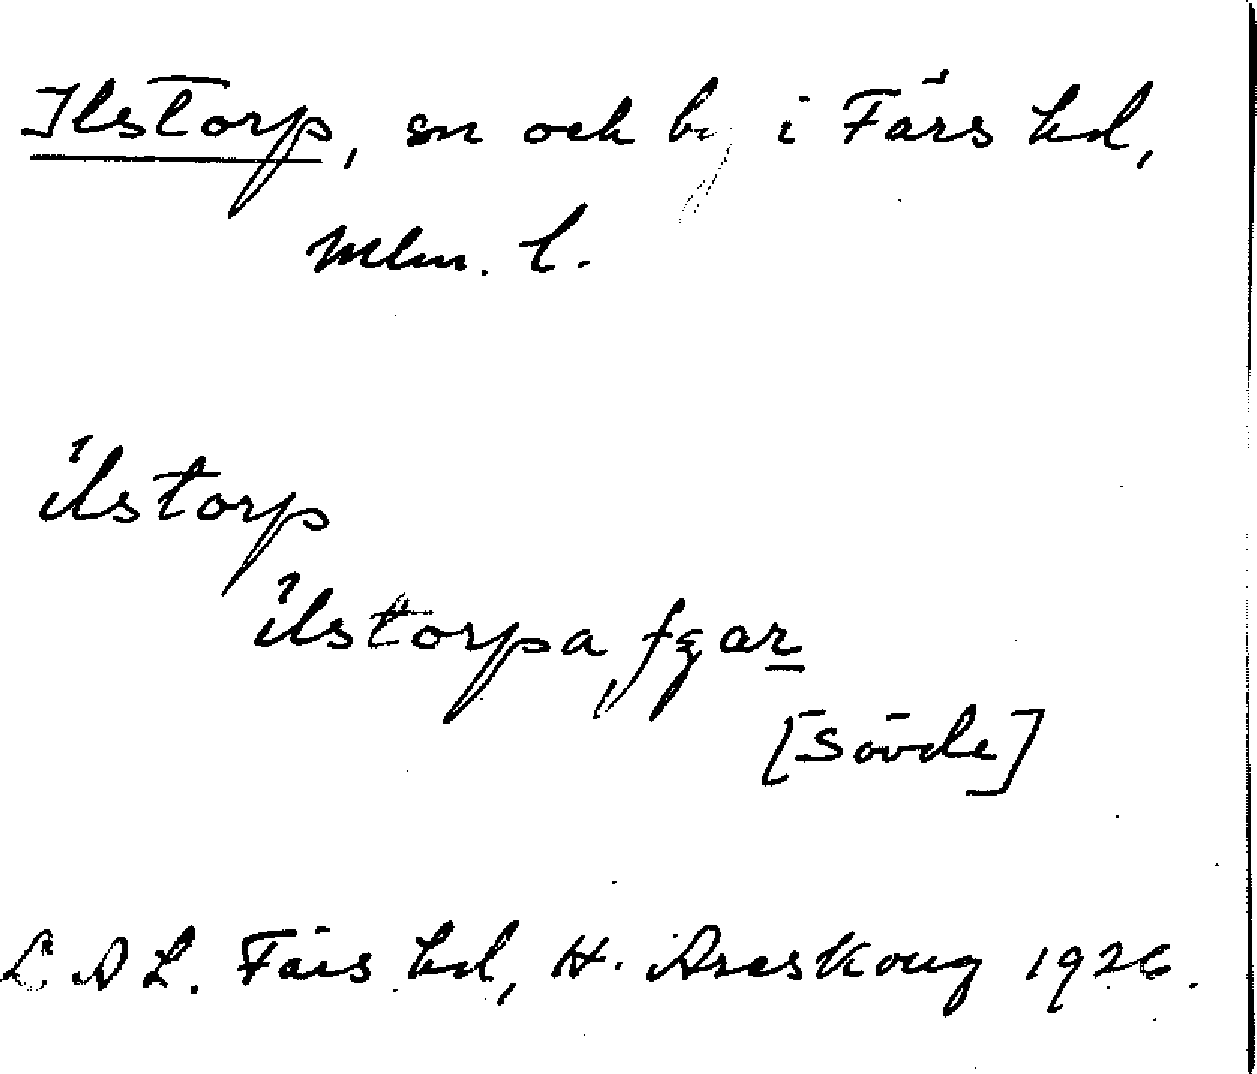 Ilstorp, sn och by i Färs hd,
Mlm. l.
ilstorp
ilstorpa
[Sövde]
L A L. Färs hd, H. Areskoug 1926.